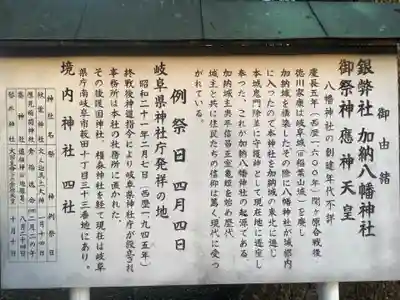 御由緒
銀弊社 加納八幡神社
御祭神 應神天皇
八幡神社の創建年代不詳
慶長五年(西歴一六〇〇年)関ヶ原合戦後
徳川家康は岐阜城(旧稲葉山城)を廃し
加納城を築城したその際に八幡神社が城郭内
に入ったので本神社を加納城の東北に遷し
本城鬼門除並に守護神として現在地に遷座し
奉った、これが加納八幡神社の起源である
加納城主奥平信昌王室亀姫を始め歴代
城主と共に住民たちの信仰は篤く現代に受つ
がれている。
例祭日 四月四日
岐阜県神社庁発祥の地
昭和二十一年二月七日(西歴一九四五年)
終戦後神道指令により岐阜県神社庁が設立され
事務所は本社の社務所に置かれた。
その後護国神社、橿森神社を経て現在は岐阜
県庁南岐阜市薮田十丁目三十三番地にあり。
境内神社 四社
神社名 祭神 例祭日